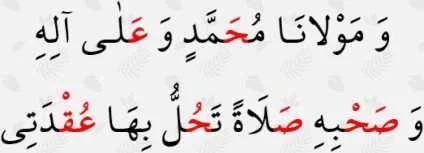 وَ مَوْلانَا مُحَمَّدٍ وَ عَلٰى آلِهِ
وَ صَحْبِهِ صَلَاةً تَحُلُّ بِهَا عُقْدَتِى